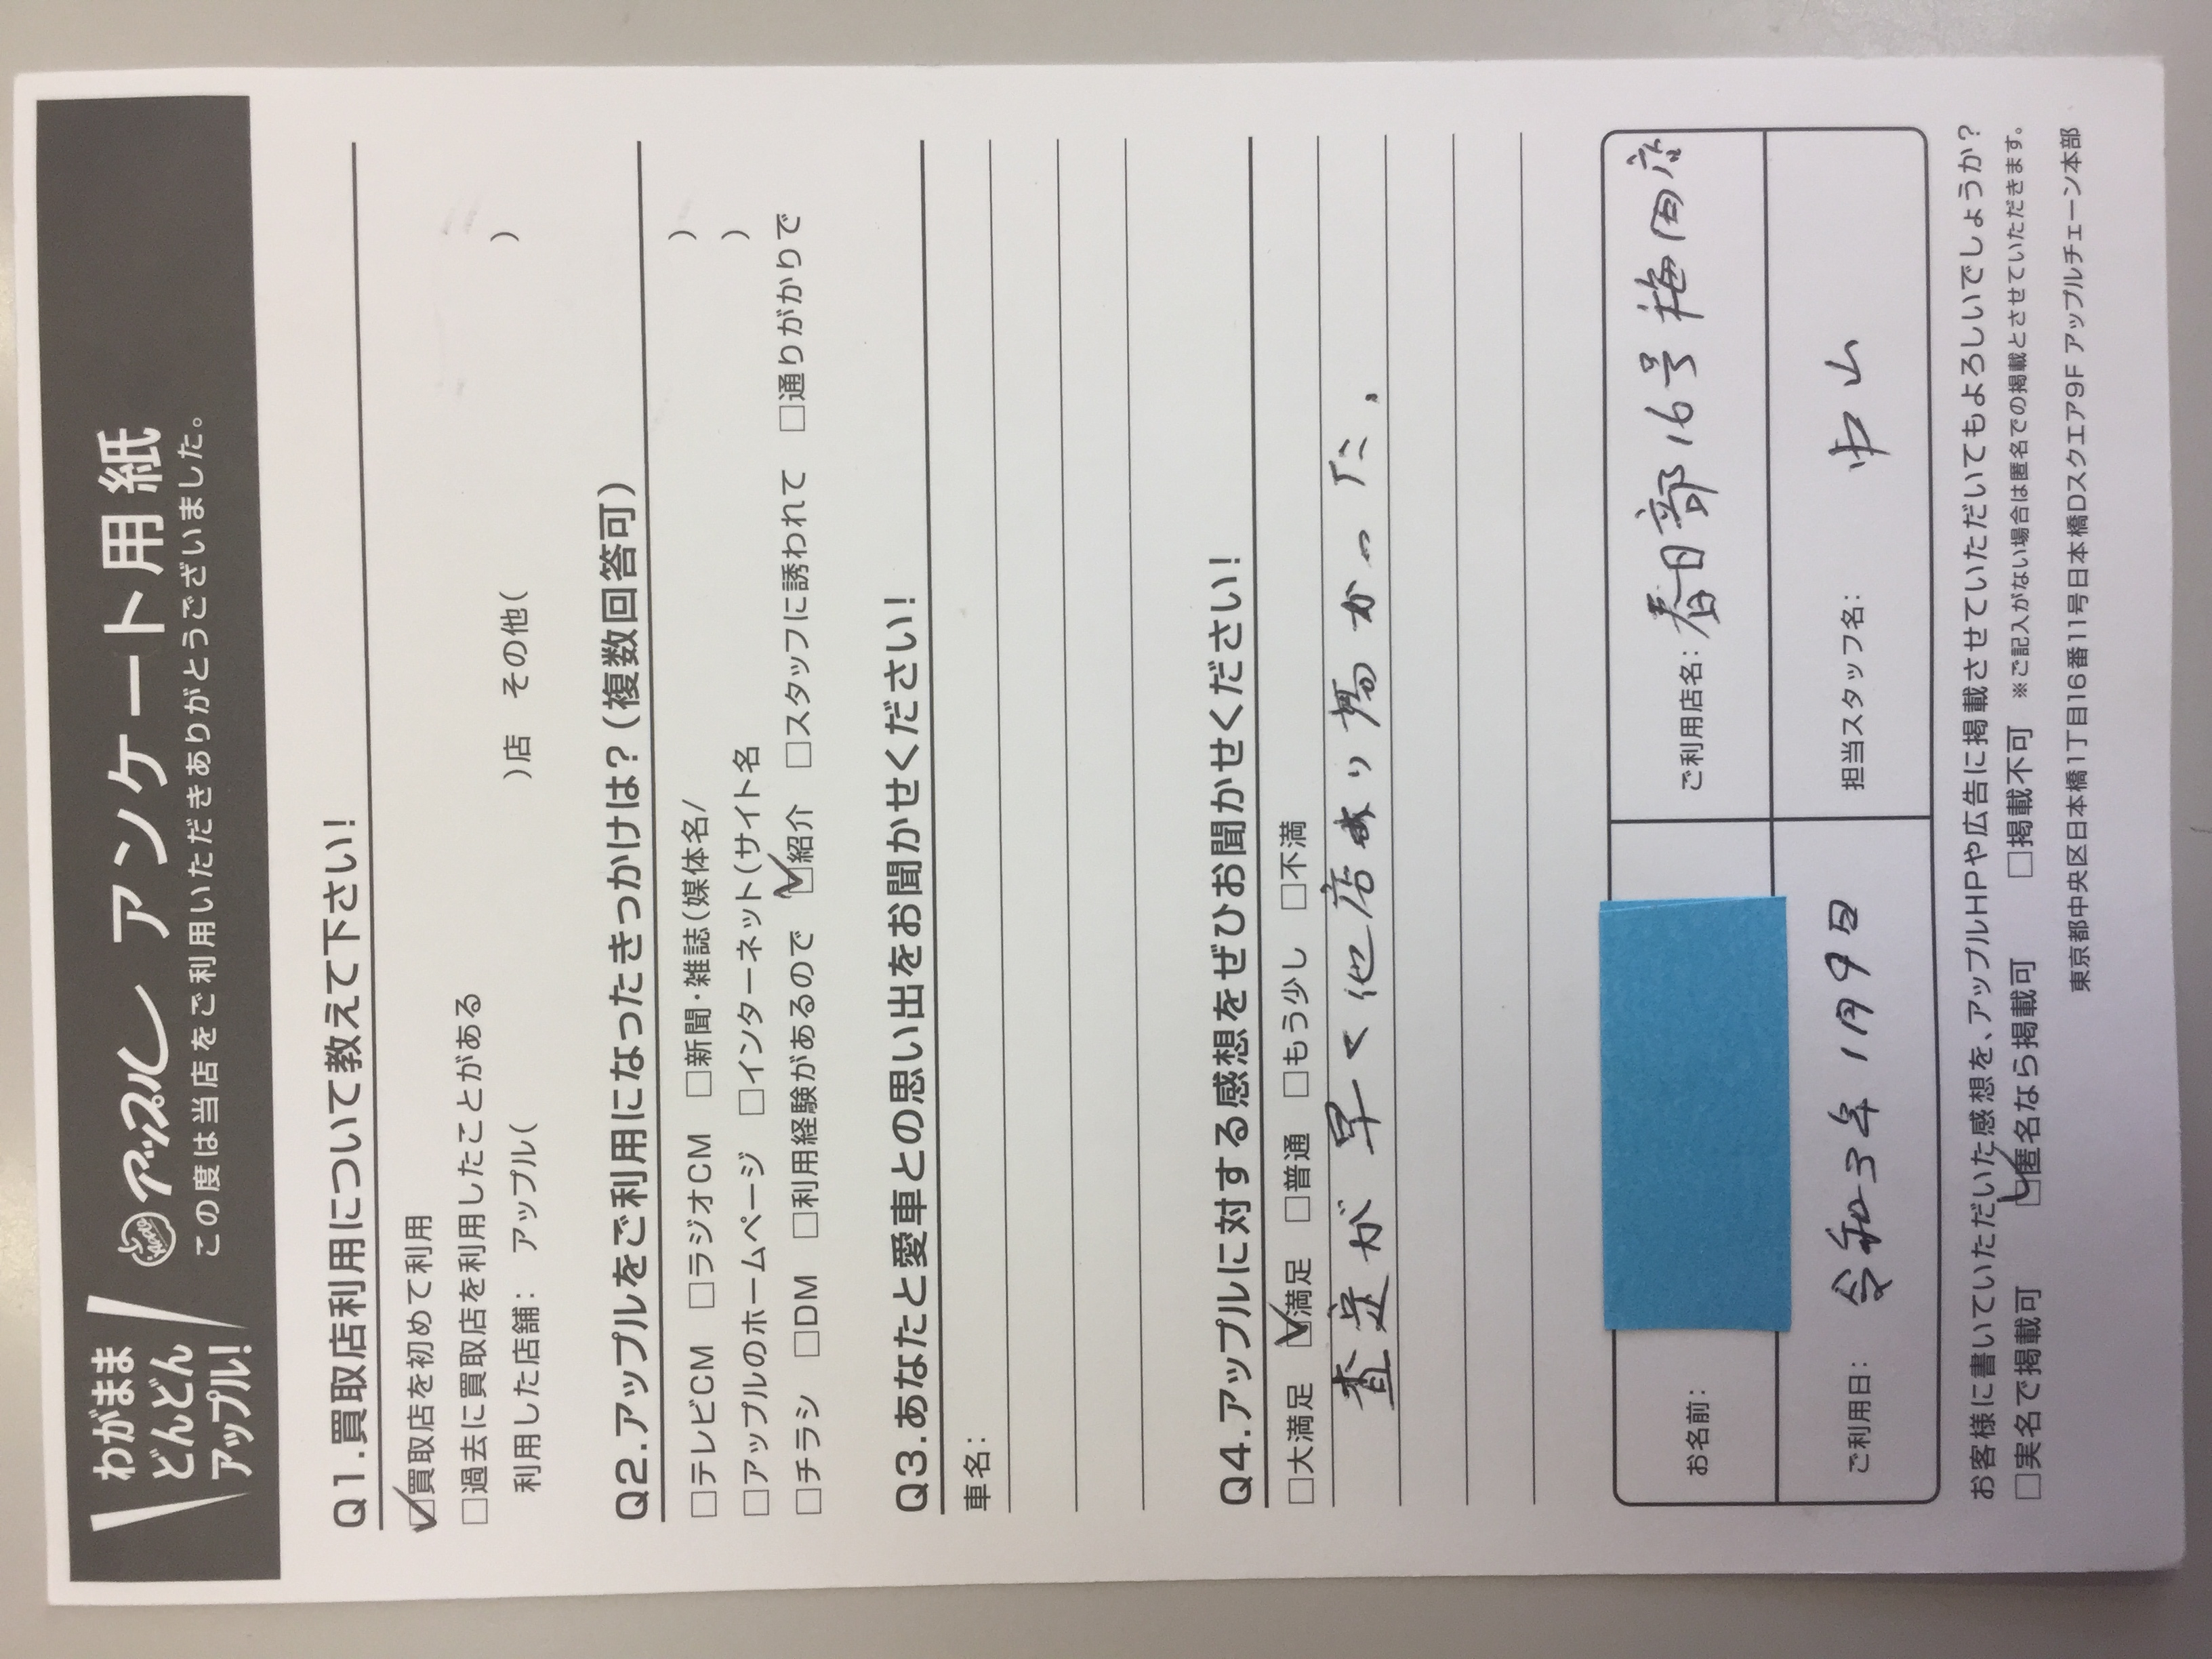 わがまま
どんどん
アップル!
アップル アンケート用紙
この度は当店をご利用いただきありがとうございました。
Q1.買取店利用について教えて下さい!
☑買取店を初めて利用
□過去に買取店を利用したことがある
利用した店舗: アップル( )店 その他( )
Q2.アップルをご利用になったきっかけは?(複数回答可)
□テレビCM □ラジオCM □新聞・雑誌(媒体名/ )
□アップルのホームページ □インターネット(サイト名 )
□チラシ □DM □利用経験があるので ☑紹介 □スタッフに誘われて □通りがかりで
Q3.あなたと愛車との思い出をお聞かせください!
車名:
Q4.アップルに対する感想をぜひお聞かせください!
□大満足 ☑満足 □普通 □もう少し □不満
査定が早く他店より高かった、
お名前: ご利用店名:春日部16号梅田店
ご利用日: 令和3年1月9日 担当スタッフ名: 中山
お客様に書いていただいた感想を、アップルHPや広告に掲載させていただいてもよろしいでしょうか?
□実名で掲載可 ☑匿名なら掲載可 □掲載不可 ※ご記入がない場合は匿名での掲載とさせていただきます。
東京都中央区日本橋1丁目16番11号日本橋Dスクエア9F アップルチェーン本部